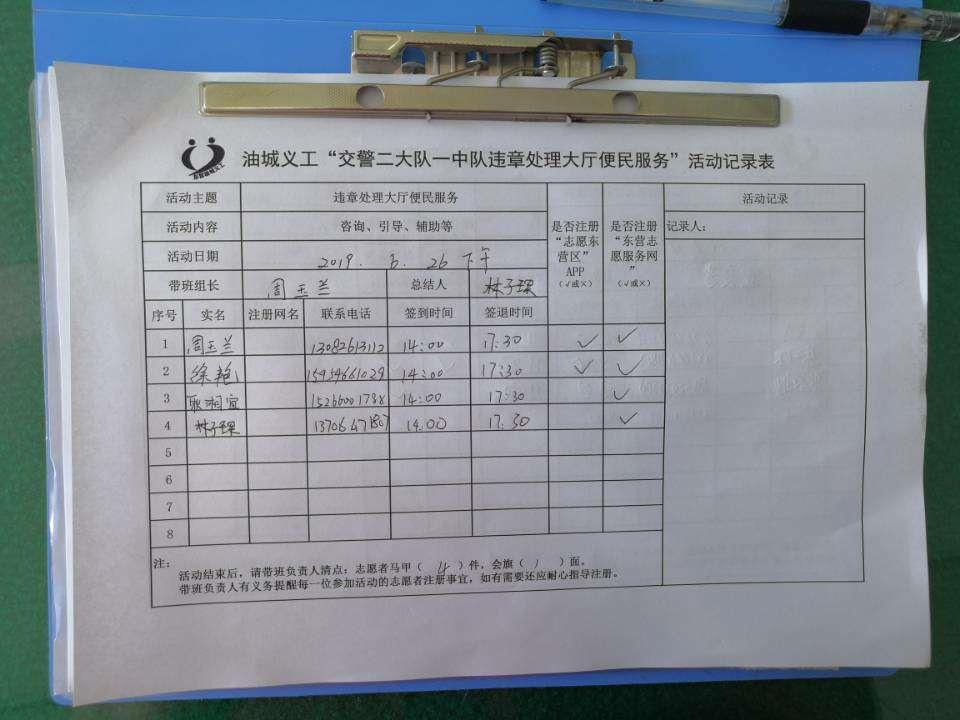 油城义工“交警二大队一中队违章处理大厅便民服务”活动记录表
活动主题 违章处理大厅便民服务 是否注册“志愿东营区”APP（√或×） 是否注册“东营志愿服务网”（√或×） 活动记录
活动内容 咨询、引导、辅助等 记录人：
活动日期 2019. 6. 26 下午
带班组长 周玉兰 总结人 林子琛
序号 实名 注册网名 联系电话 签到时间 签退时间
1 周玉兰 13082613112 14:00 17:30 √ √
2 徐艳 15954661029 14:00 17:30 √ √
3 耿湘宜 15266001788 14:00 17:30 √
4 林子琛 13706471807 14:00 17:30 √
5
6
7
8
注：
活动结束后，请带班负责人清点：志愿者马甲（ 4 ）件，会旗（ 1 ）面。
带班负责人有义务提醒每一位参加活动的志愿者注册事宜，如有需要还应耐心指导注册。